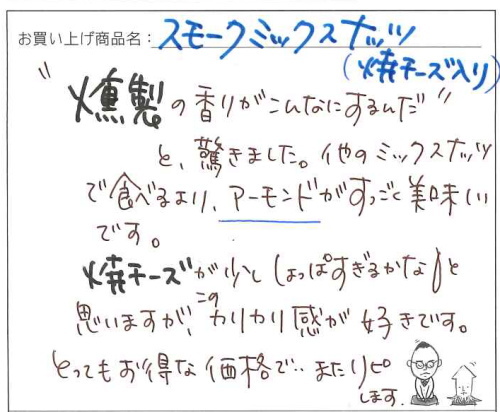 お買い上げ商品名：スモークミックスナッツ
(焼チーズ入り)
"燻製の香りがこんなにするんだ"
と、驚きました。他のミックスナッツ
で食べるより、アーモンドがすっごく美味しい
です。
焼チーズが少し しょっぱすぎるかな!と
思いますが、この カリカリ感が好きです。
とってもお得な価格で‥またリピ
します.